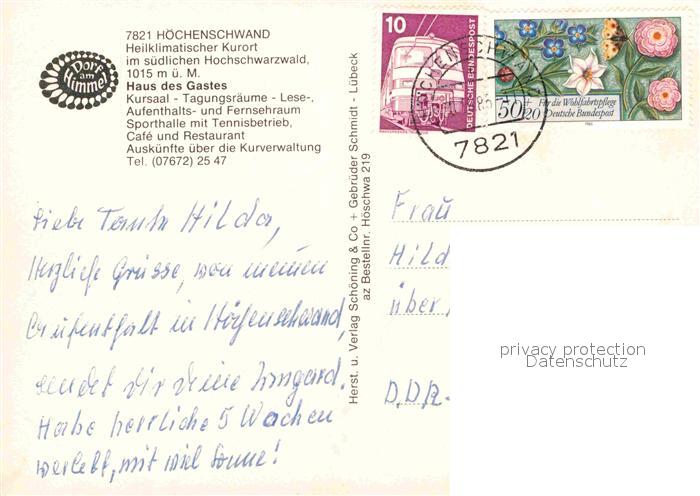 Dorf
am
Himmel
7821 HÖCHENSCHWAND
Heilklimatischer Kurort
im südlichen Hochschwarzwald,
1015 m ü. M.
Haus des Gastes
Kursaal - Tagungsräume - Lese-,
Aufenthalts- und Fernsehraum
Sporthalle mit Tennisbetrieb,
Café und Restaurant
Auskünfte über die Kurverwaltung
Tel. (07672) 25 47
Liebe Tante Hilda,
Herzliche Grüsse, von meinem
Aufenthalt in Höchenschwand,
sendet Dir Deine Irmgard.
Habe herrliche 5 Wochen
verlebt, mit viel Sonne!
Herst. u. Verlag Schöning & Co + Gebrüder Schmidt - Lübeck
az Bestellnr. Höschwa 219
10
DEUTSCHE BUNDESPOST
50+20
Für die Wohlfahrtspflege
Deutsche Bundespost
1985
HÖCHENSCHWAND
7821
Frau
Hild
über
D.D.R.
privacy protection
Datenschutz